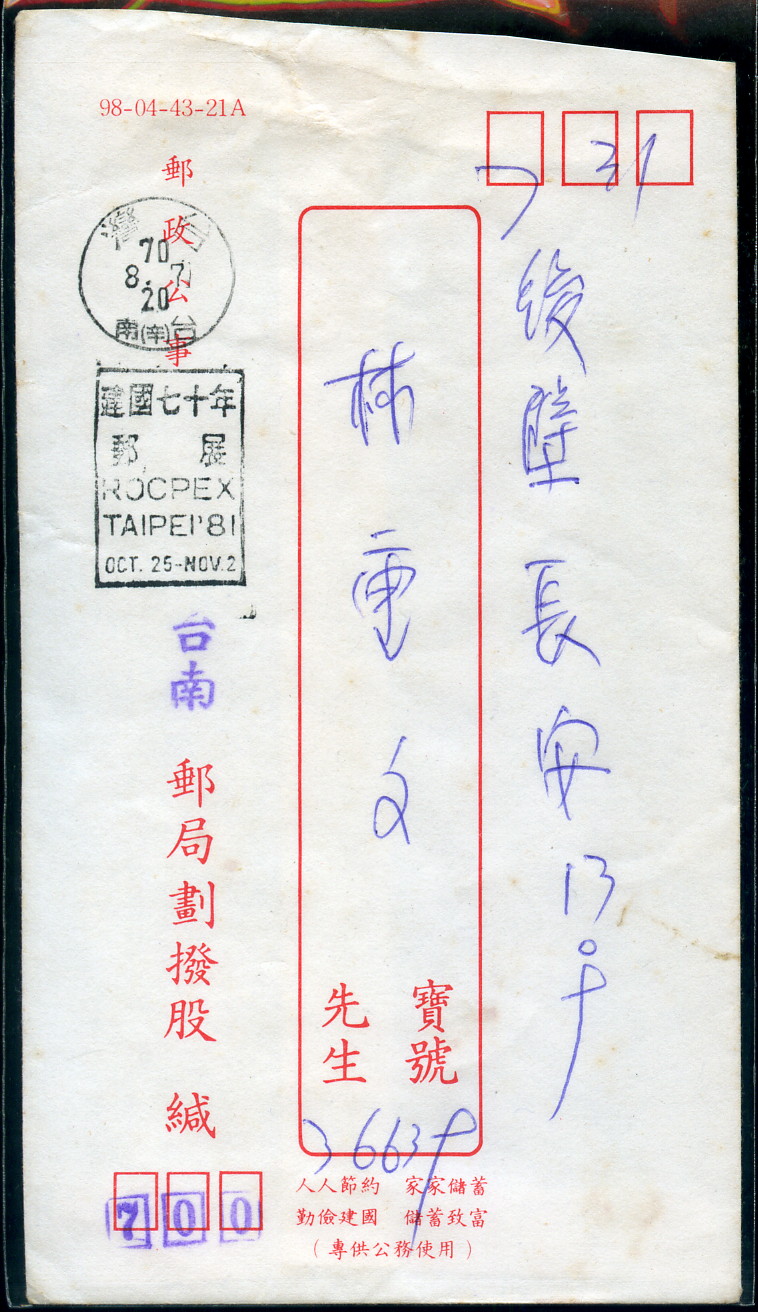 98-04-43-21A
731
後壁長安13号
林重文
寶號
先生
3663号
郵政公事
台灣
70
8. 7
20
台(辛)南
建國七十年
郵展
ROCPEX
TAIPEI'81
OCT. 25-NOV.2
台南
郵局劃撥股 緘
700
人人節約 家家儲蓄
勤儉建國 儲蓄致富
(專供公務使用)